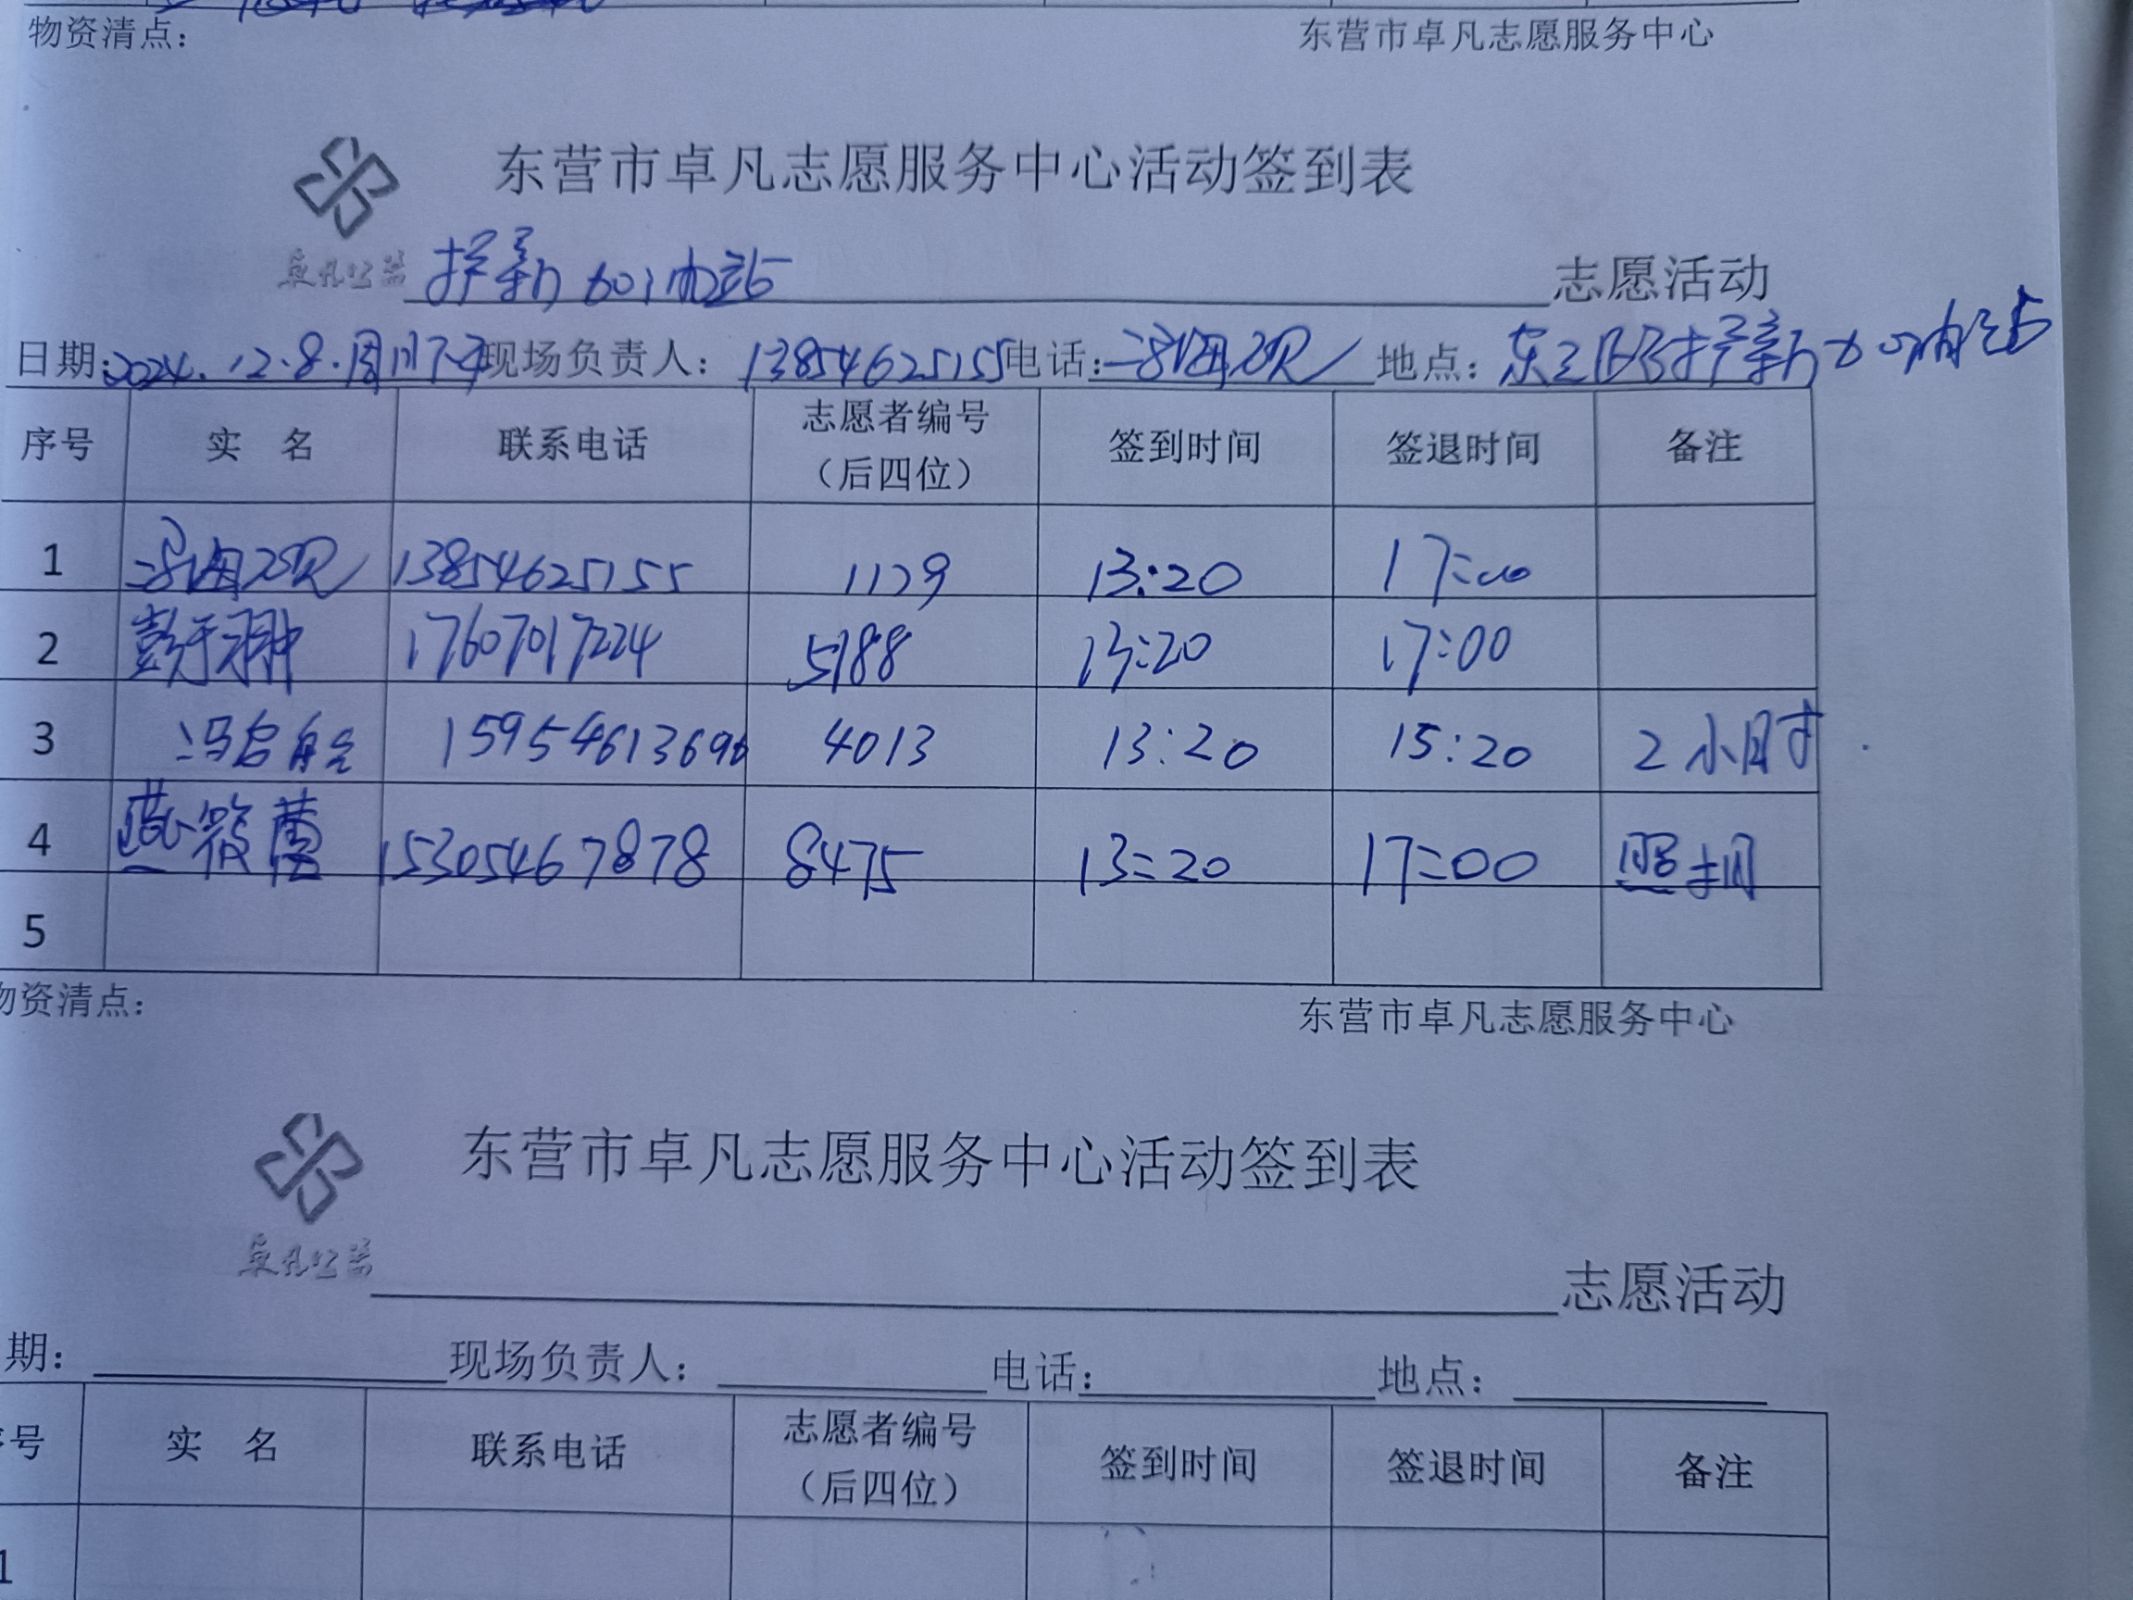 物资清点：
东营市卓凡志愿服务中心
东营市卓凡志愿服务中心活动签到表
卓凡公益
护新加油站 志愿活动
日期：2024.12.8.周日下午 现场负责人：13854625155 电话： 地点：东三路护新加油站
序号 实 名 联系电话 志愿者编号（后四位） 签到时间 签退时间 备注
1 13854625155 1129 13:20 17:00
2 17607017224 5188 13:20 17:00
3 15954613696 4013 13:20 15:20 2小时
4 燕筱蕾 15305467878 8475 13:20 17:00
5
物资清点：
东营市卓凡志愿服务中心
东营市卓凡志愿服务中心活动签到表
卓凡公益
志愿活动
期： 现场负责人： 电话： 地点：
号 实 名 联系电话 志愿者编号（后四位） 签到时间 签退时间 备注
1